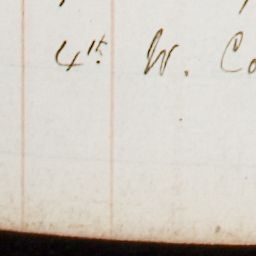 4th W. Co